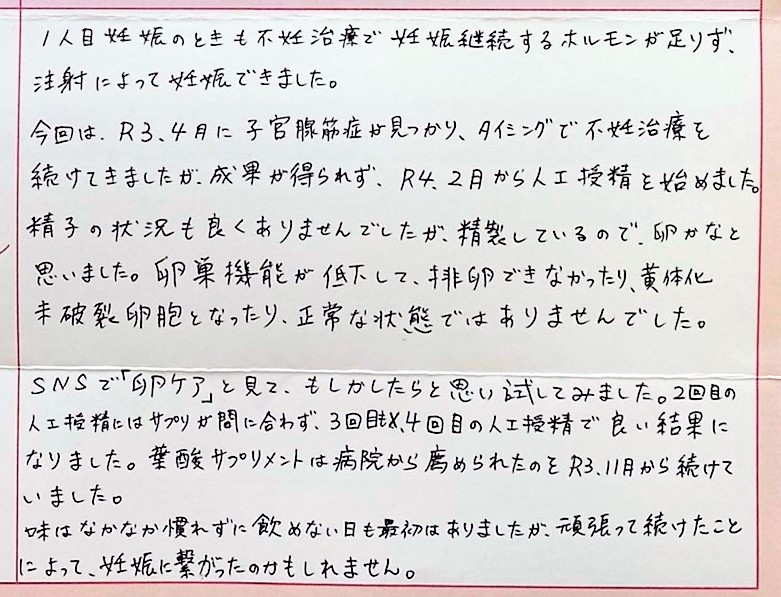 1人目妊娠のときも不妊治療で妊娠継続するホルモンが足りず、
注射によって妊娠できました。
今回は、R3、4月に子宮腺筋症が見つかり、タイミングで不妊治療を
続けてきましたが、成果が得られず、R4、2月から人工授精を始めました。
精子の状況も良くありませんでしたが、精製しているので、卵かなと
思いました。卵巣機能が低下して、排卵できなかったり、黄体化
未破裂卵胞となったり、正常な状態ではありませんでした。
SNSで「卵ケア」と見て、もしかしたらと思い試してみました。2回目の
人工授精にはサプリが間に合わず、3回目、4回目の人工授精で良い結果に
なりました。葉酸サプリメントは病院から薦められたのをR3、11月から続けて
いました。
味はなかなか慣れずに飲めない日も最初はありましたが、頑張って続けたこと
によって、妊娠に繋がったのかもしれません。